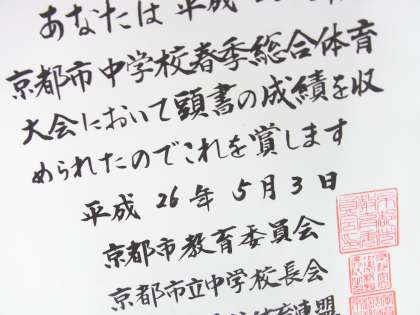 あなたは 平成
京都市中学校春季総合体育
大会において頭書の成績を収
められたのでこれを賞します
平成 26 年 5 月 3 日
京都市教育委員会
京都市立中学校長会
体育連盟